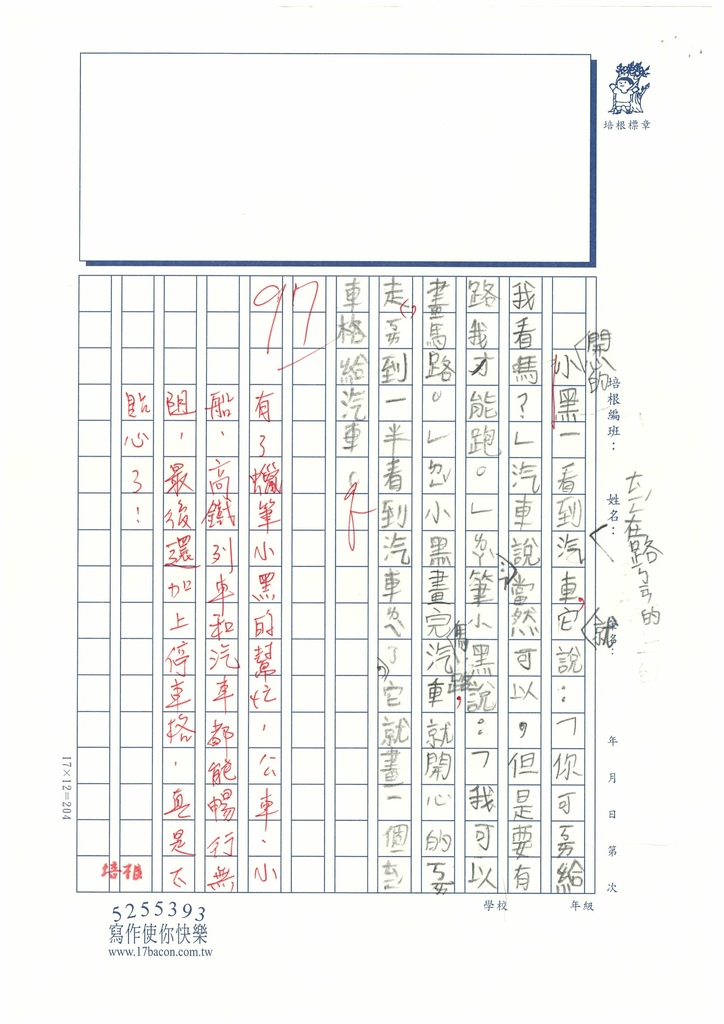 培根標章
培根編班：
姓名：
年 月 日 第 次
學校
年級
開心的
ㄊㄧㄥ在路ㄅㄧㄢ的
就
小黑一看到汽車，它說：「你可ㄋㄥ給
我看嗎？」汽車說當然可以，但是要有
路我才能跑。」ㄌㄚ筆小黑說：「我可以
畫馬路。」ㄌㄚ小黑畫完汽車就開心的ㄎㄞ
馬路，
走，ㄎㄞ到一半看到汽車ㄌㄟ了它就畫一個ㄊㄧㄥ
車格給汽車。
97
有了蠟筆小黑的幫忙，公車、小
船、高鐵列車和汽車都能暢行無
阻，最後還加上停車格，真是太
貼心了！
培根
17×12=204
5255393
寫作使你快樂
www.17bacon.com.tw